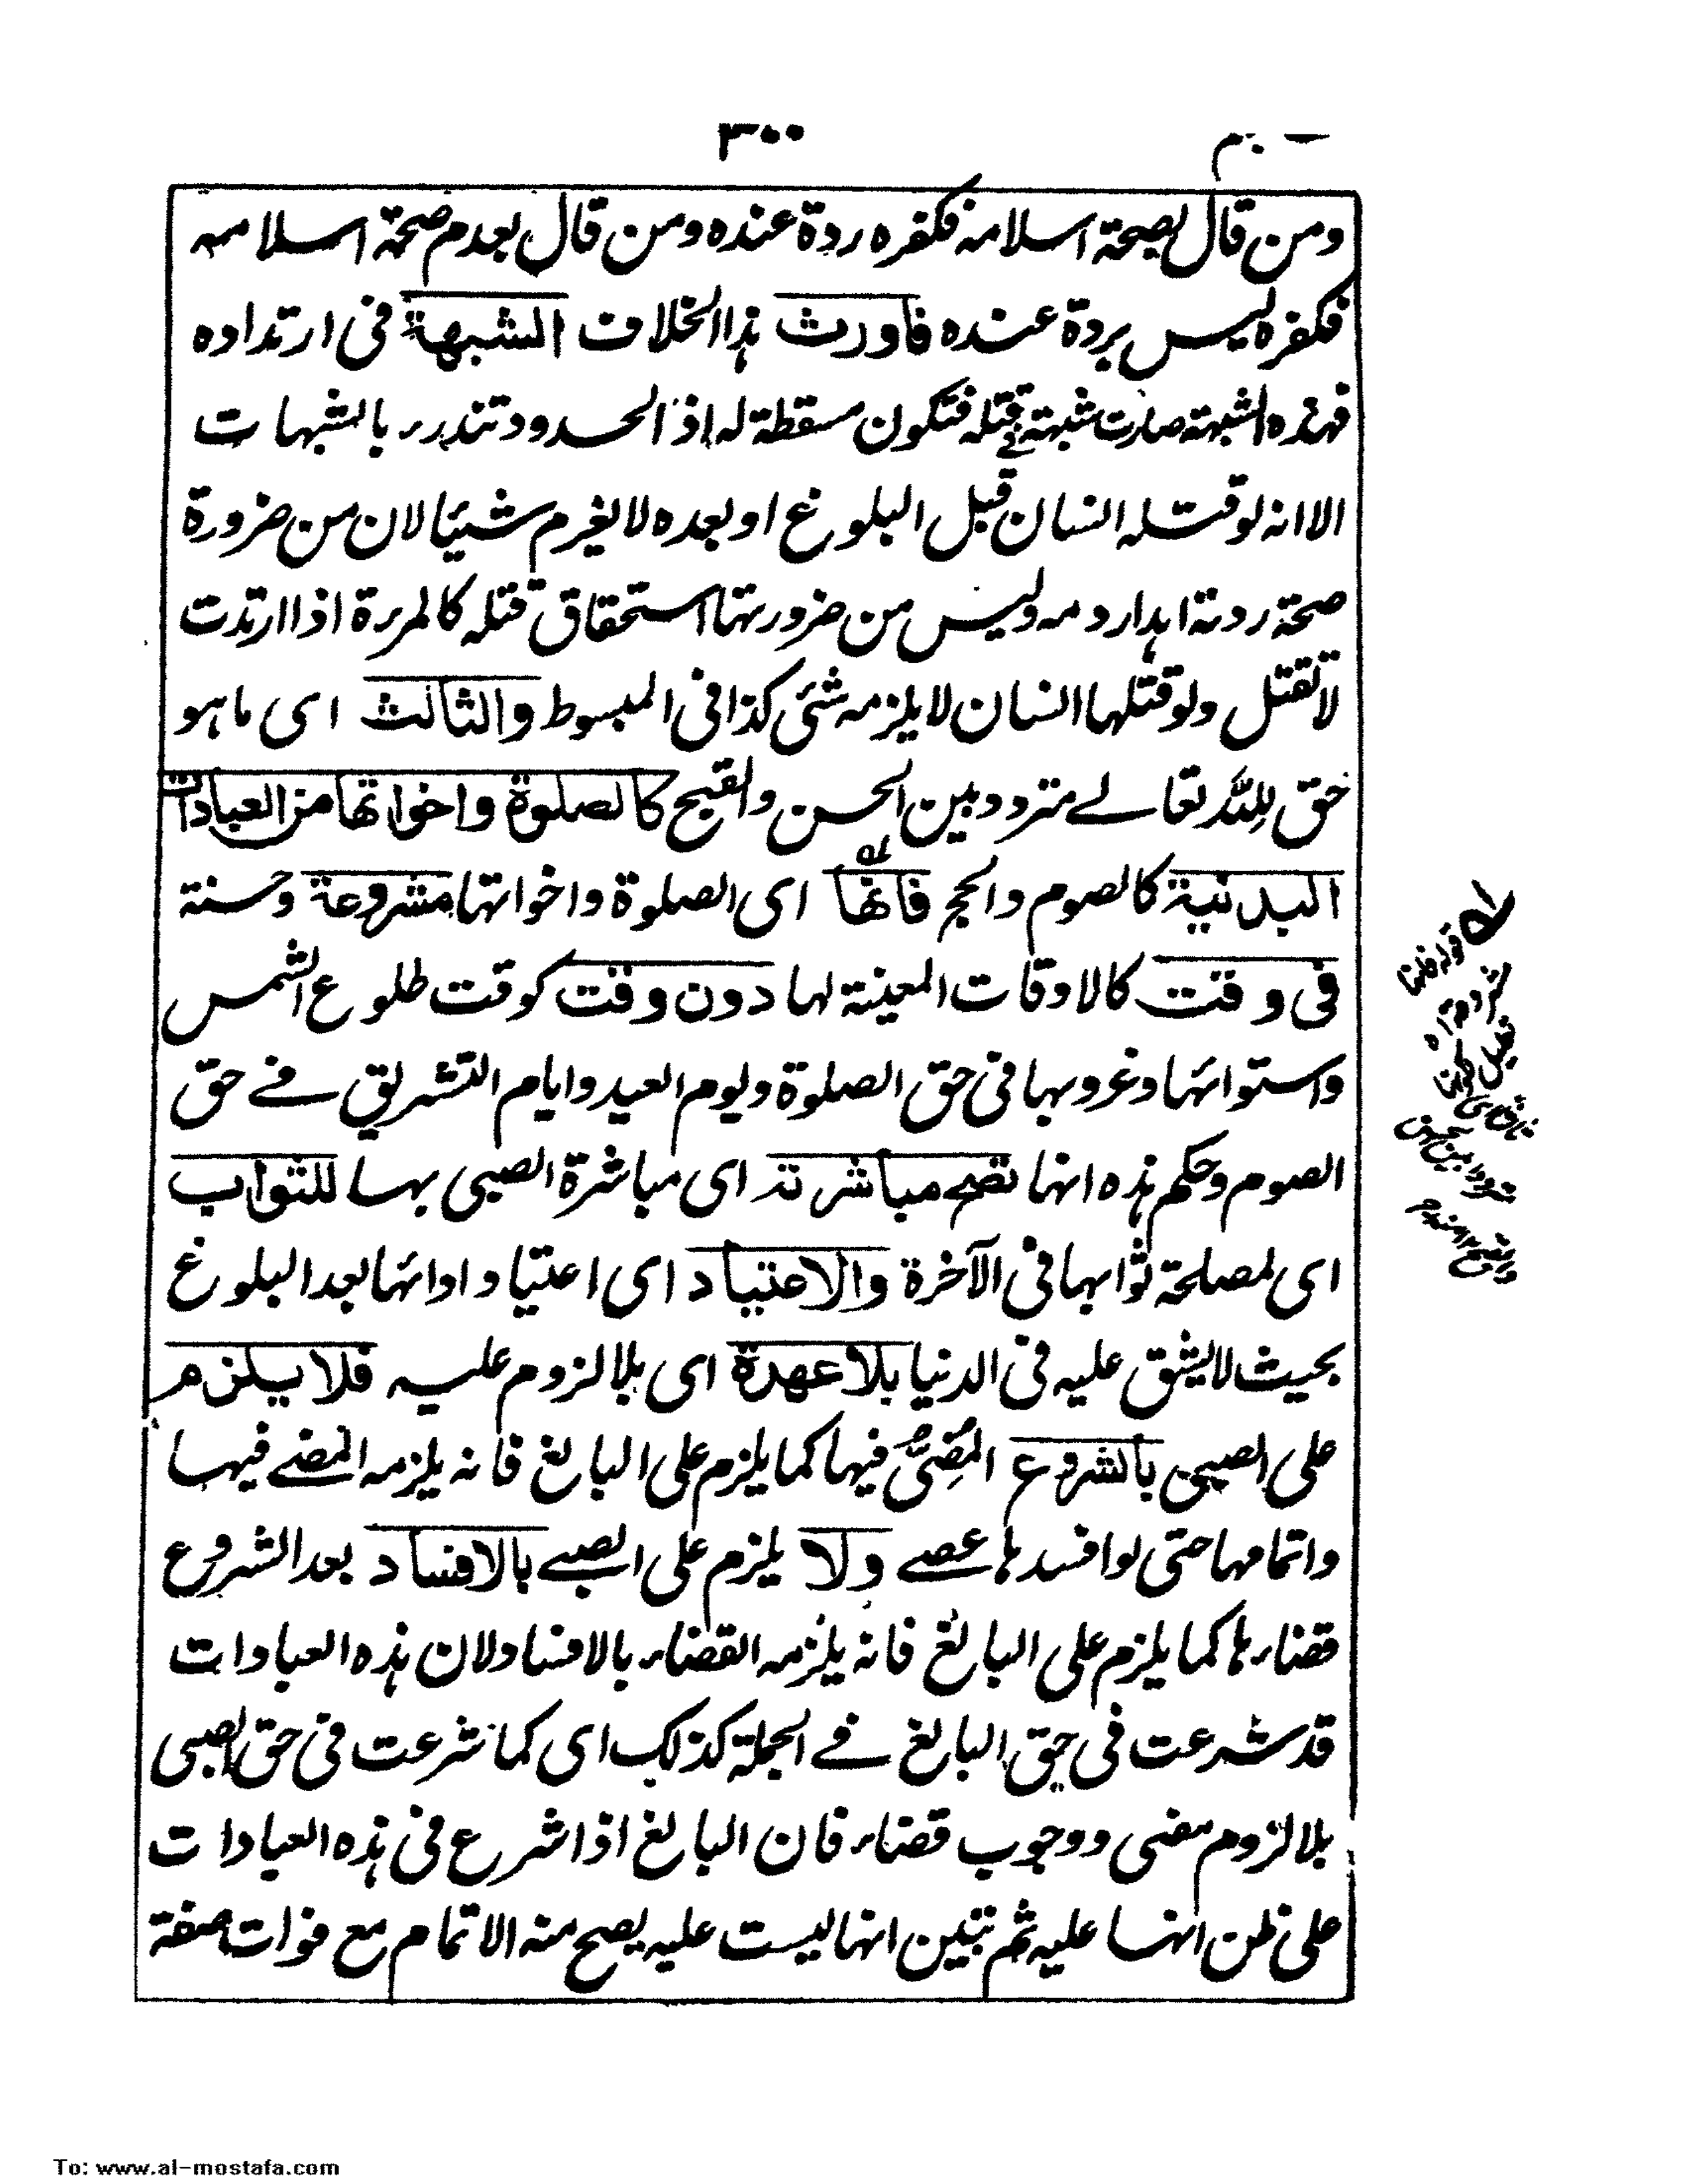 ٣٠٠
ومن قال بصحة اسلامه فكفره ردة عنده ومن قال بعدم صحة اسلامه
فكفره ليس بردة عنده فاورث هذا الخلاف الشبهة فى ارتداده
فهذه الشبهة صارت شبهة فى قتله فتكون مسقطة له اذ الحدود تندرء بالشبهات
الا انه لو قتله انسان قبل البلوغ او بعده لا يغرم شيئا لان من ضرورة
صحة ردته اهدار دمه وليس من ضرورتها استحقاق قتله كالمرءة اذا ارتدت
لا تقتل ولو قتلها انسان لا يلزمه شئى كذا فى المبسوط والثالث اى ما هو
حق لله تعالے متردد بين الحسن والقبح كالصلوة واخواتها من العبادات
البدنية كالصوم والحج فانها اى الصلوة واخواتها مشروعة وحسنة
فى وقت كالاوقات المعينة لها دون وقت كوقت طلوع الشمس
واستوائها وغروبها فى حق الصلوة ويوم العيد وايام التشريق فے حق
الصوم وحكم هذه انها تصح مباشرته اى مباشرة الصبى بها للثواب
اى لمصلحة ثوابها فى الآخرة والاعتياد اى اعتياد ادائها بعد البلوغ
بحيث لا يشق عليه فى الدنيا بلا عهدة اى بلا لزوم عليه فلا يلزم
على الصبى بالشروع المُضِىُّ فيها كما يلزم على البالغ فانه يلزمه المضے فيها
واتمامها حتى لو افسدها عصے ولا يلزم على الصبے بالافساد بعد الشروع
قضاءها كما يلزم على البالغ فانه يلزمه القضاء بالافساد لان هذه العبادات
قد شرعت فى حق البالغ فے الجملة كذلك اى كما شرعت فى حق الصبى
بلا لزوم مضى ووجوب قضاء فان البالغ اذا شرع فى هذه العبادات
على ظن انها عليه ثم تبين انها ليست عليه يصح منه الاتمام مع فوات صفة
له قوله فانها
To: www.al-mostafa.com